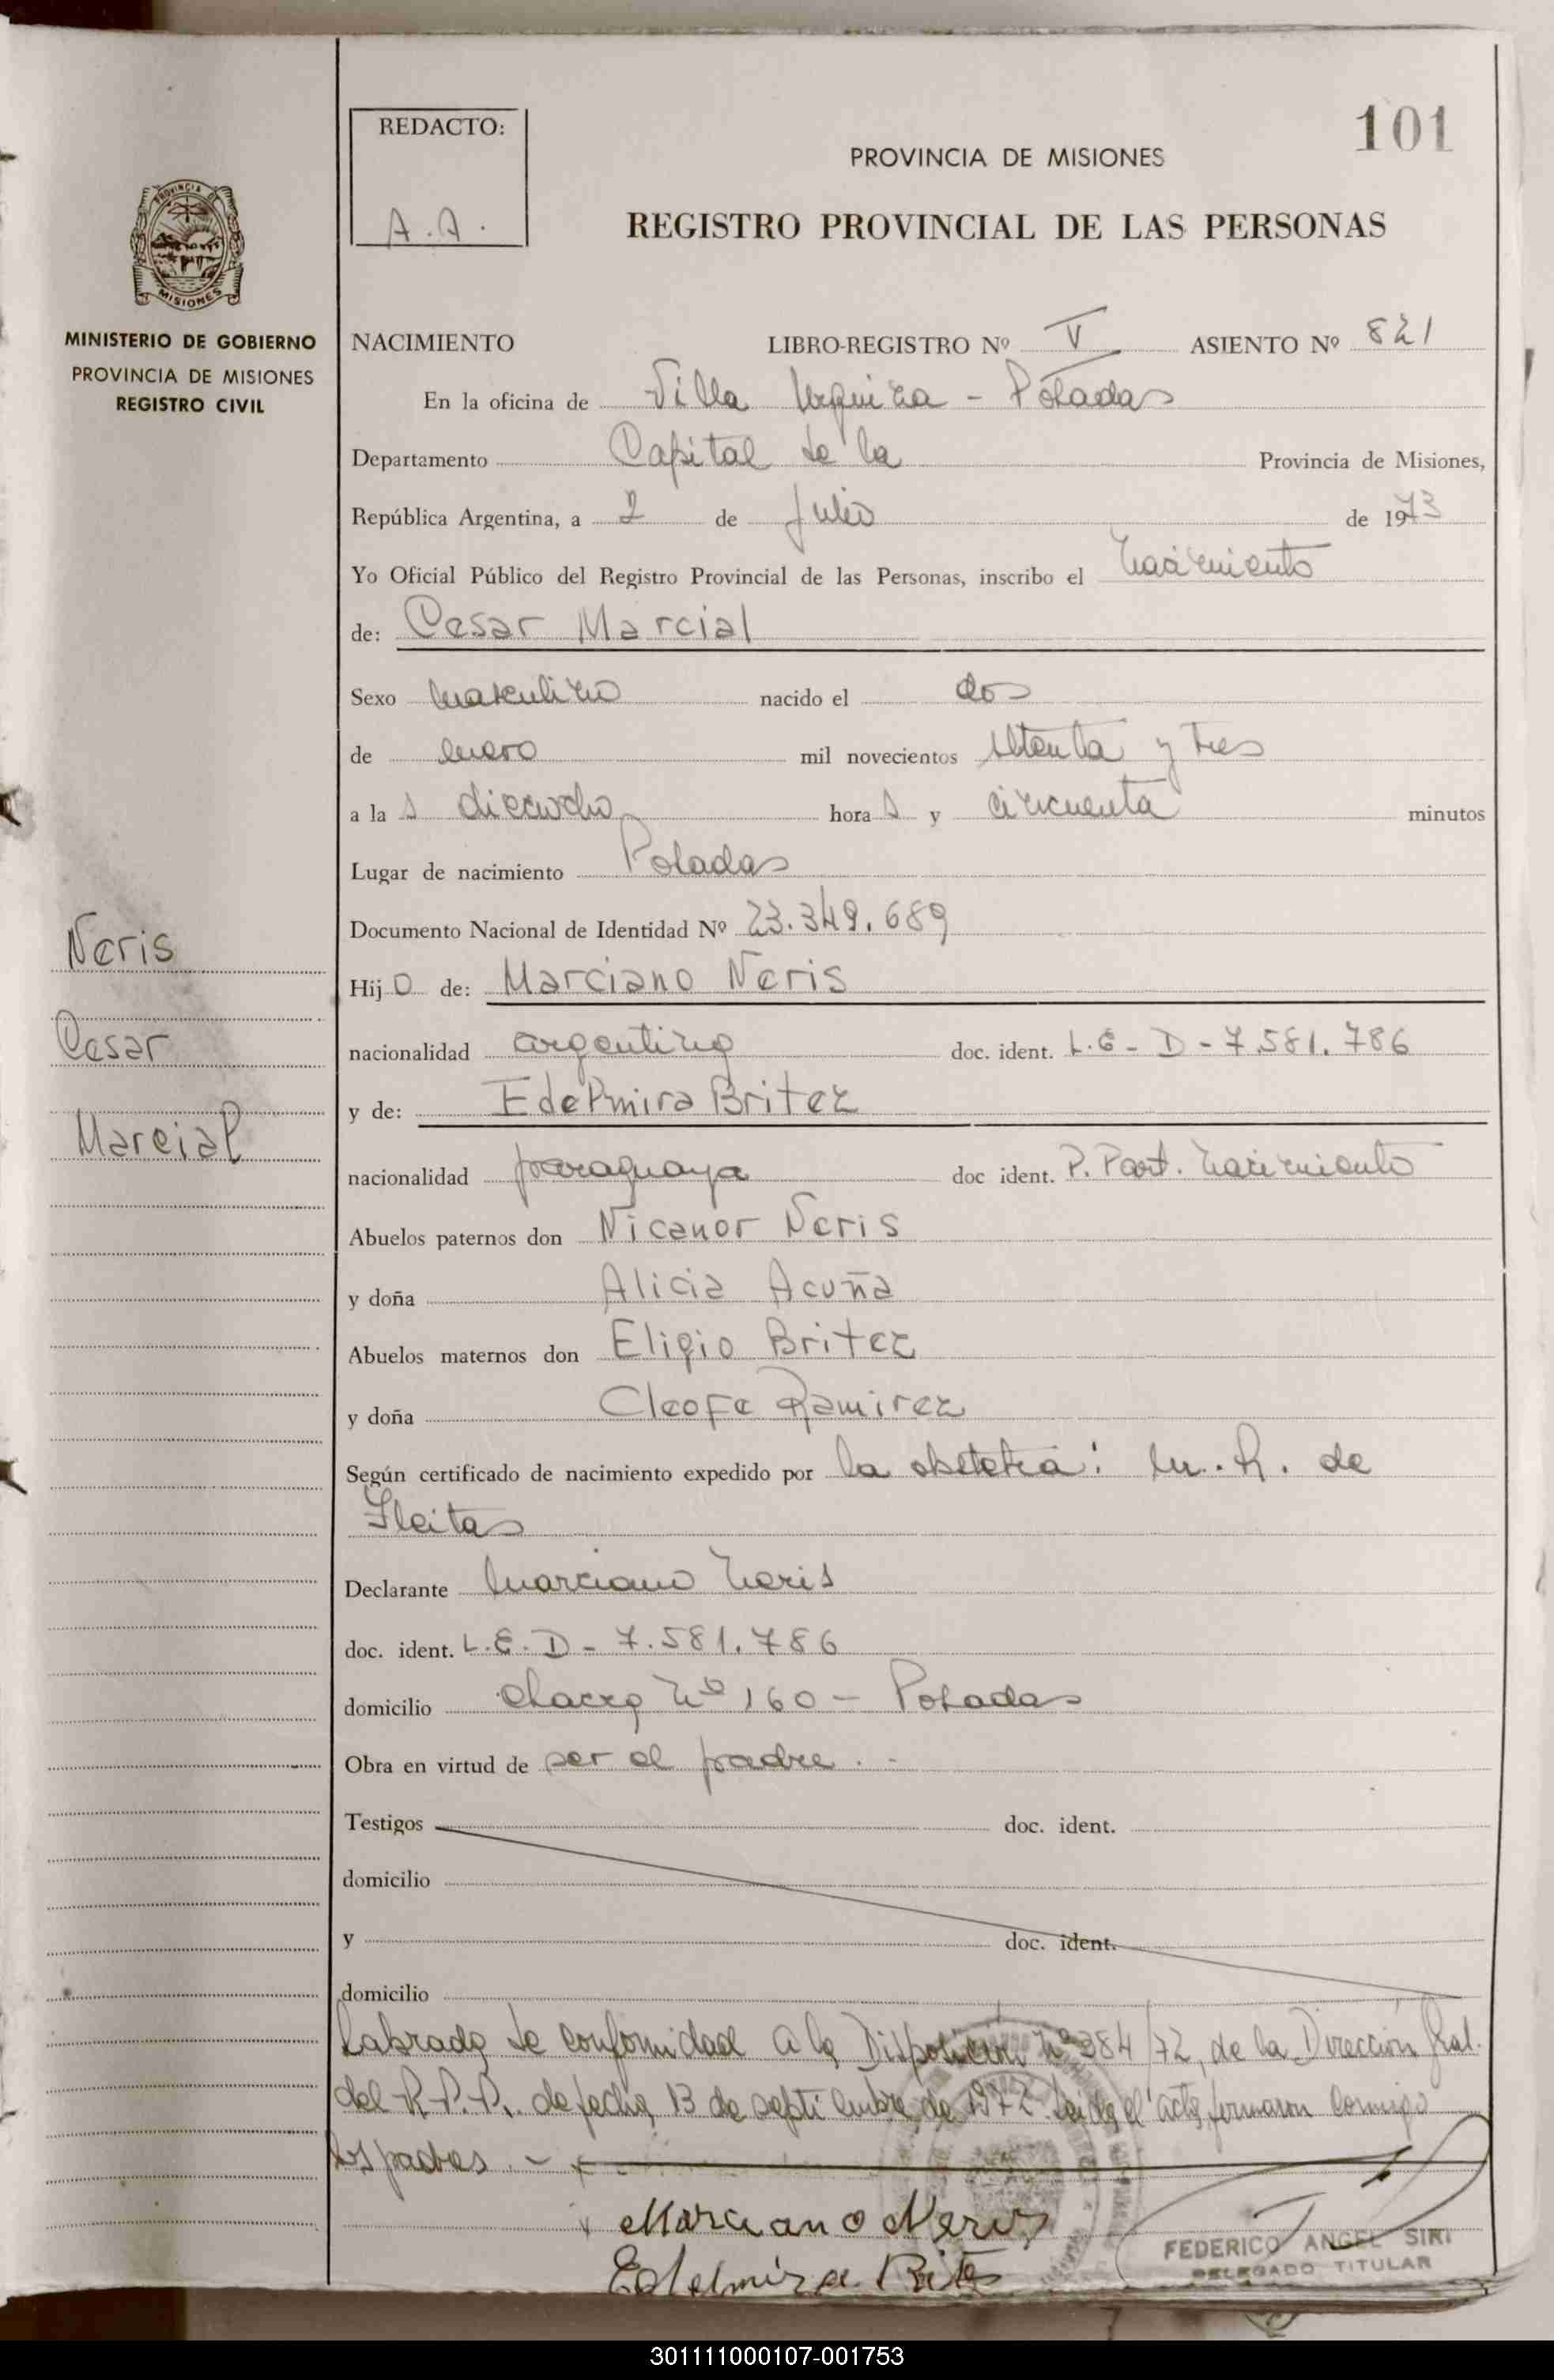 101
REDACTO:
A.A.
PROVINCIA DE MISIONES
REGISTRO PROVINCIAL DE LAS PERSONAS
PROVINCIA DE
MISIONES
MINISTERIO DE GOBIERNO
PROVINCIA DE MISIONES
REGISTRO CIVIL
NACIMIENTO LIBRO-REGISTRO Nº V ASIENTO Nº 821
En la oficina de Villa Urquiza - Posadas
Departamento Capital de la Provincia de Misiones,
República Argentina, a 2 de Julio de 1973
Yo Oficial Público del Registro Provincial de las Personas, inscribo el nacimiento
de: Cesar Marcial
Sexo masculino nacido el dos
de enero mil novecientos setenta y tres
a la s dieciocho hora s y cincuenta minutos
Lugar de nacimiento Posadas
Documento Nacional de Identidad Nº 23.349.689
Neris
Hij o de: Marciano Neris
Cesar
nacionalidad argentino doc. ident. L.E - D - 7.581.786
y de: Edelmira Britez
Marcial
nacionalidad paraguaya doc ident. P. Part. nacimiento
Abuelos paternos don Nicanor Neris
y doña Alicia Acuña
Abuelos maternos don Eligio Britez
y doña Cleofe Ramirez
Según certificado de nacimiento expedido por la obstetra: M. R. de
Fleitas
Declarante Marciano Neris
doc. ident. L.E. D - 7.581.786
domicilio chacra Nº 160 - Posadas
Obra en virtud de ser el padre . -
Testigos doc. ident.
domicilio
y doc. ident.
domicilio
Labrada de conformidad a la Disposición Nº 384/72, de la Dirección Gral.
del R.P.P. de fecha 13 de septiembre de 1972. Leida el acta, firmaron conmigo
los padres . -
Marciano Neris
Edelmira Brites
FEDERICO ANGEL SIRI
DELEGADO TITULAR
301111000107-001753